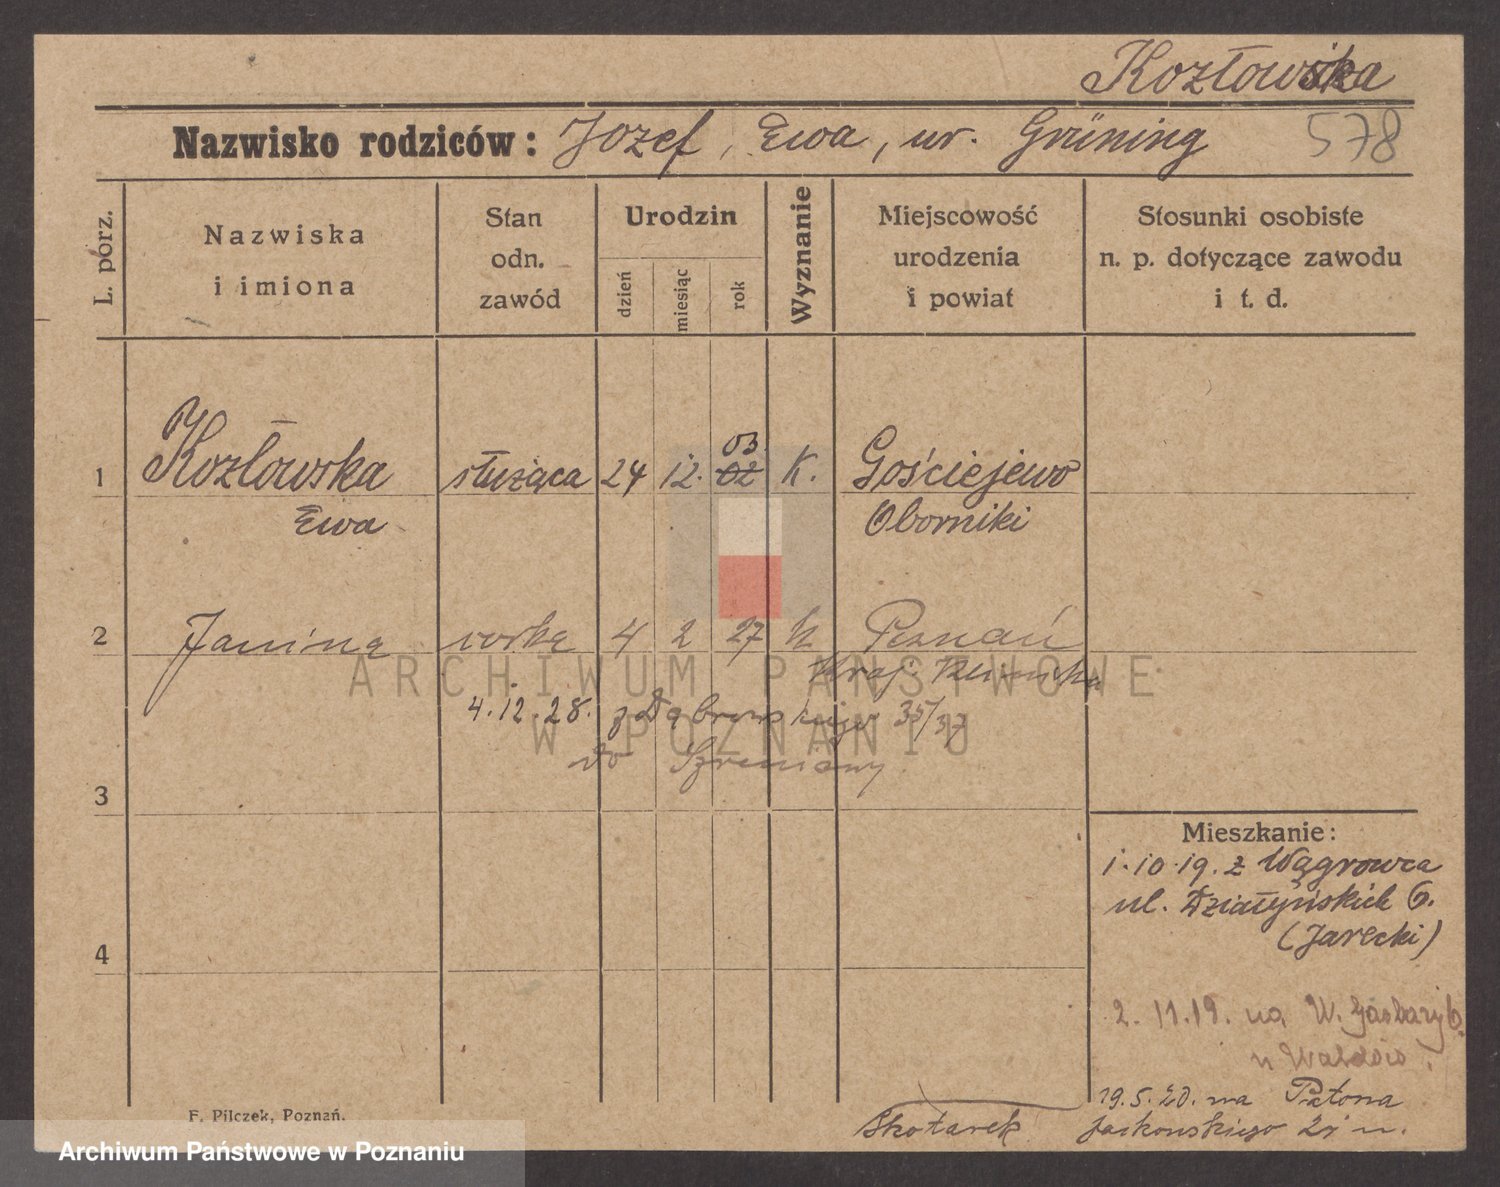 Kozłowska
Nazwisko rodziców: Jozef, Ewa, ur. Grüning 578
L. porz.
Nazwiska
i imiona
Stan
odn.
zawód
Urodzin
dzień
miesiąc
rok
Wyznanie
Miejscowość
urodzenia
i powiat
Stosunki osobiste
n. p. dotyczące zawodu
i t. d.
03
1 Kozłowska służąca 24 12. 02 K. Gościejewo
Ewa Oborniki
2 Janina córka 4 2 27 k Poznań
Kraj. Klinika
4.12.28. z Dąbrowskiego 35/37
do
3
4
Mieszkanie:
1.10.19. z Wągrowca
ul. Działyńskich 6.
(Jarecki)
2.11.19. na W. Garbary 6.
u
19.5.20. na Patrona
Jackowskiego u.
Skotarek
F. Pilczek, Poznań.
ARCHIWUM PAŃSTWOWE
W POZNANIU
Archiwum Państwowe w Poznaniu